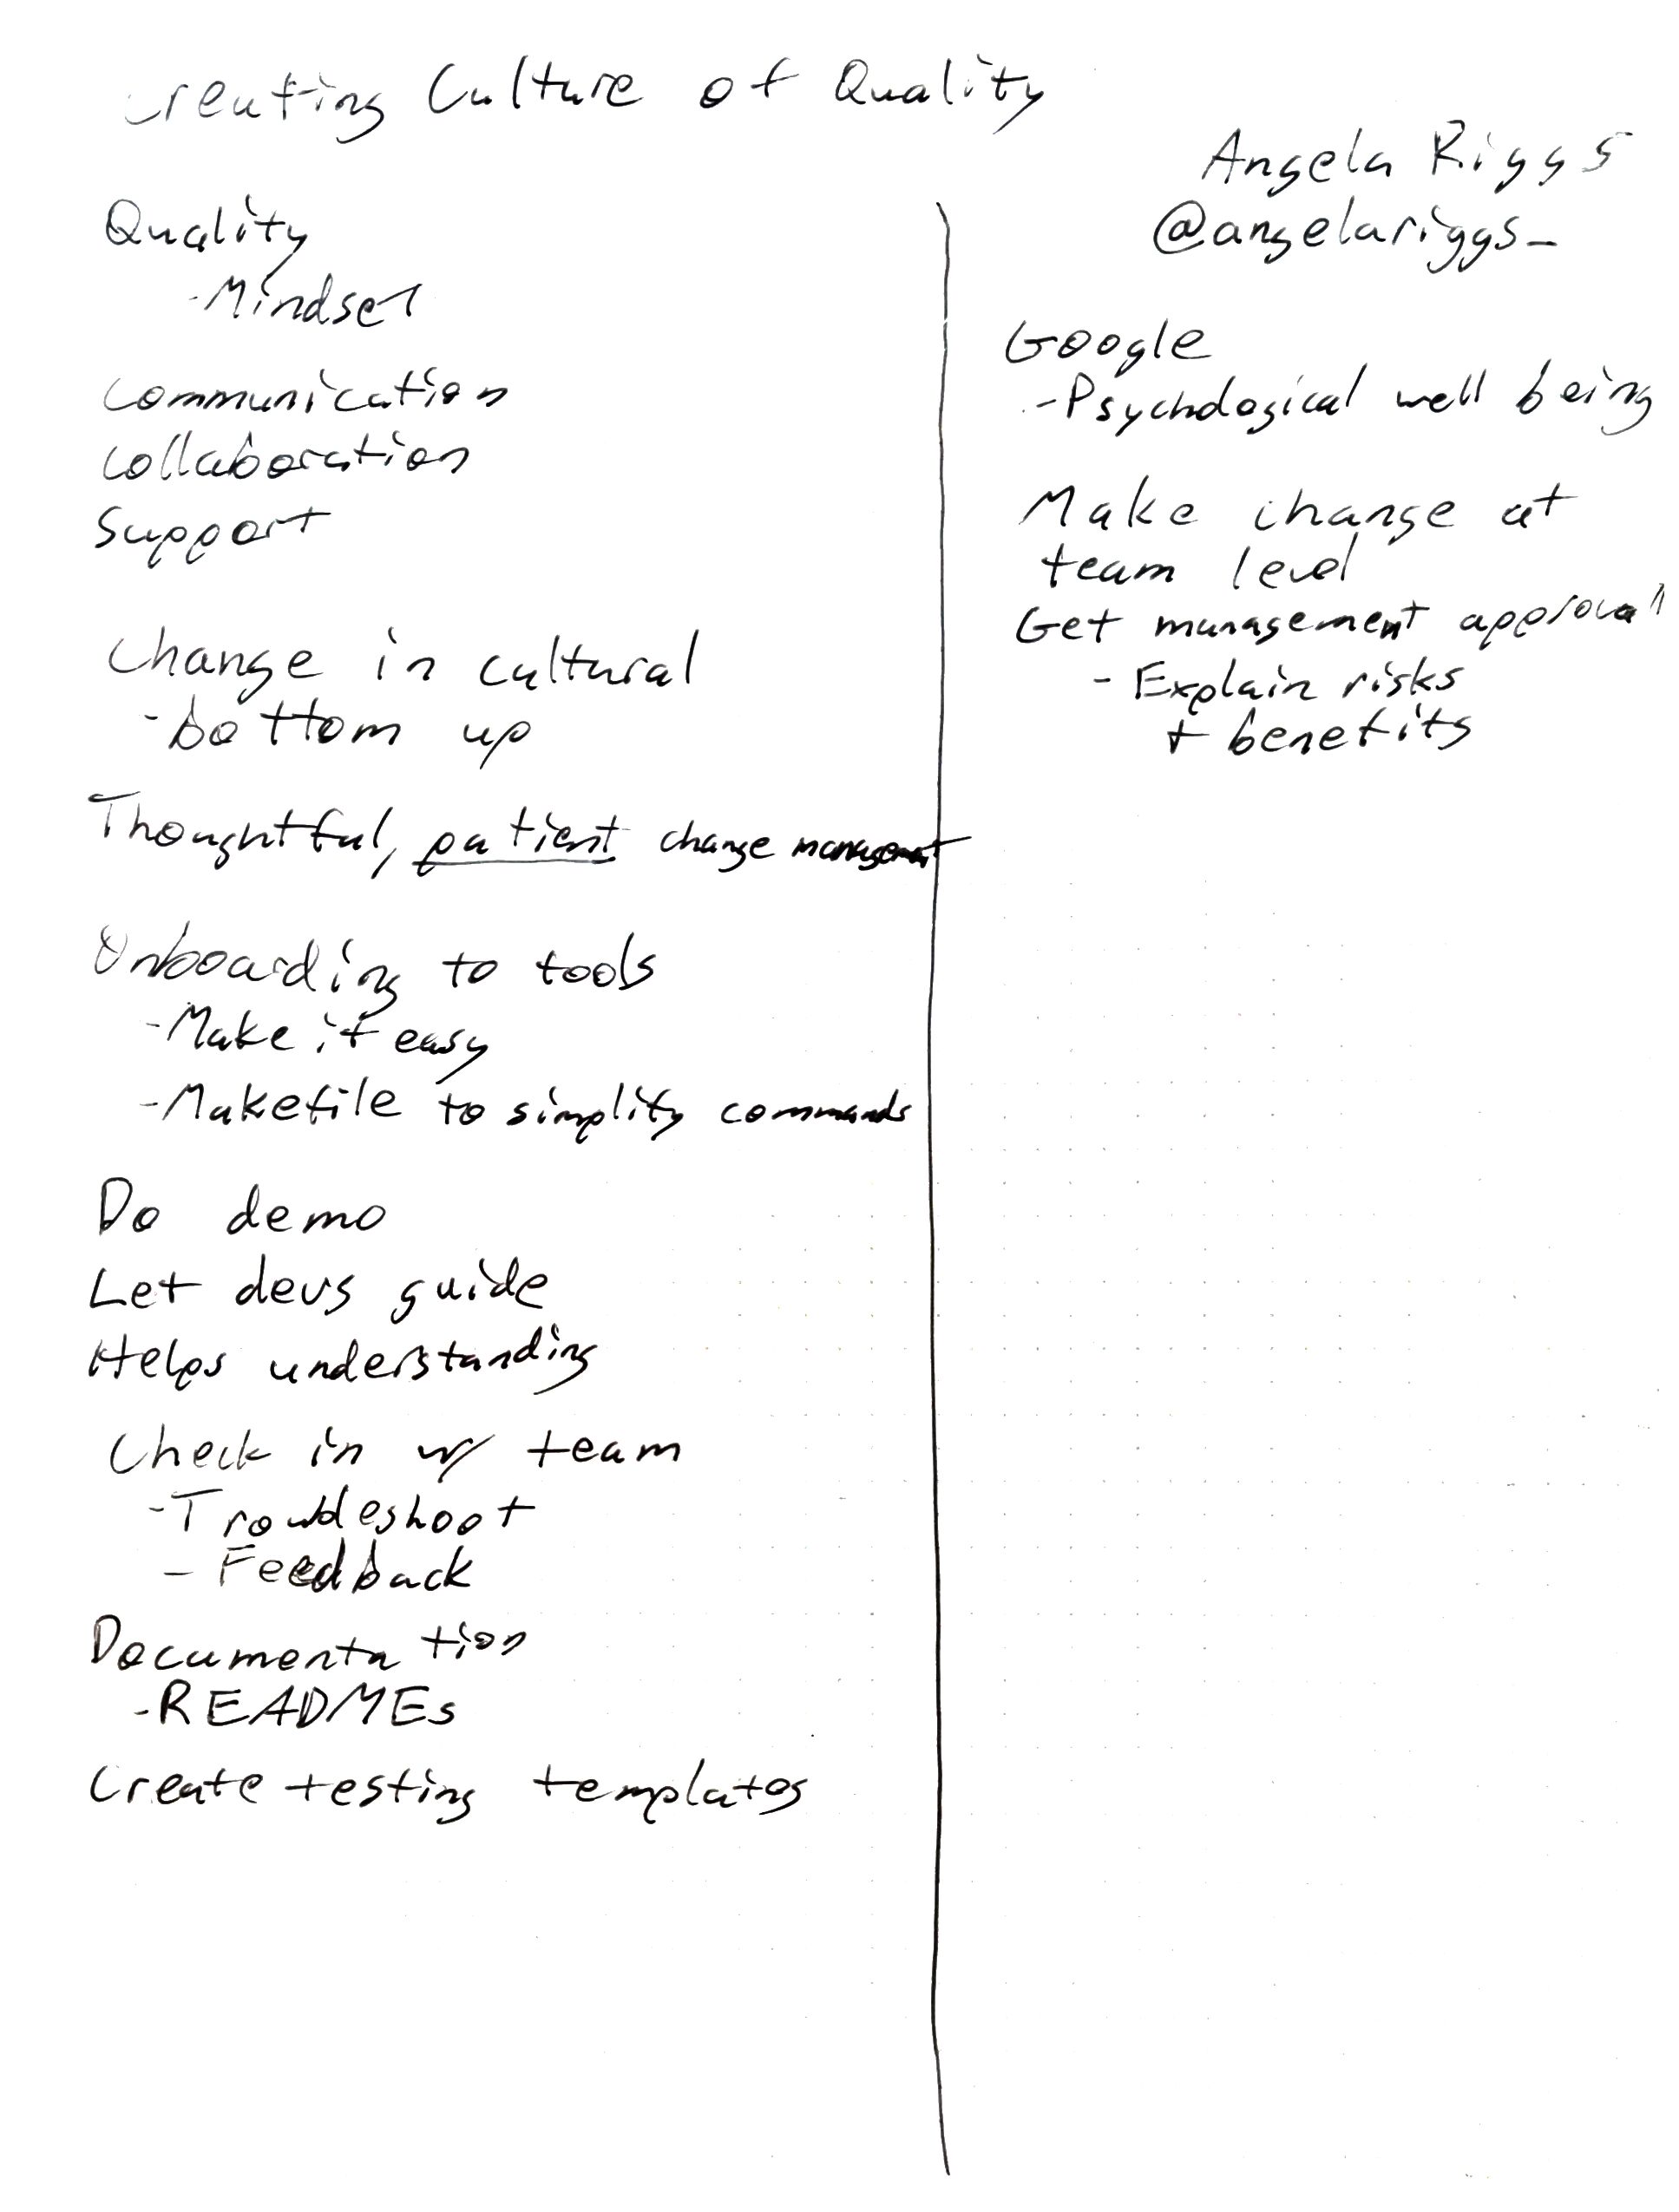 Creating Culture of Quality
Angela Riggs
@angelariggs_
Quality
-Mindset
Communication
Collaboration
Support
Change in cultural
-bottom up
Thoughtful, patient change management
Onboarding to tools
-Make it easy
-Makefile to simplify commands
Do demo
Let devs guide
Helps understanding
Check in w/ team
-Troubleshoot
- Feedback
Documentation
-READMEs
Create testing templates
Google
-Psychological well being
Make change at
team level
Get management approval
- Explain risks
+ benefits